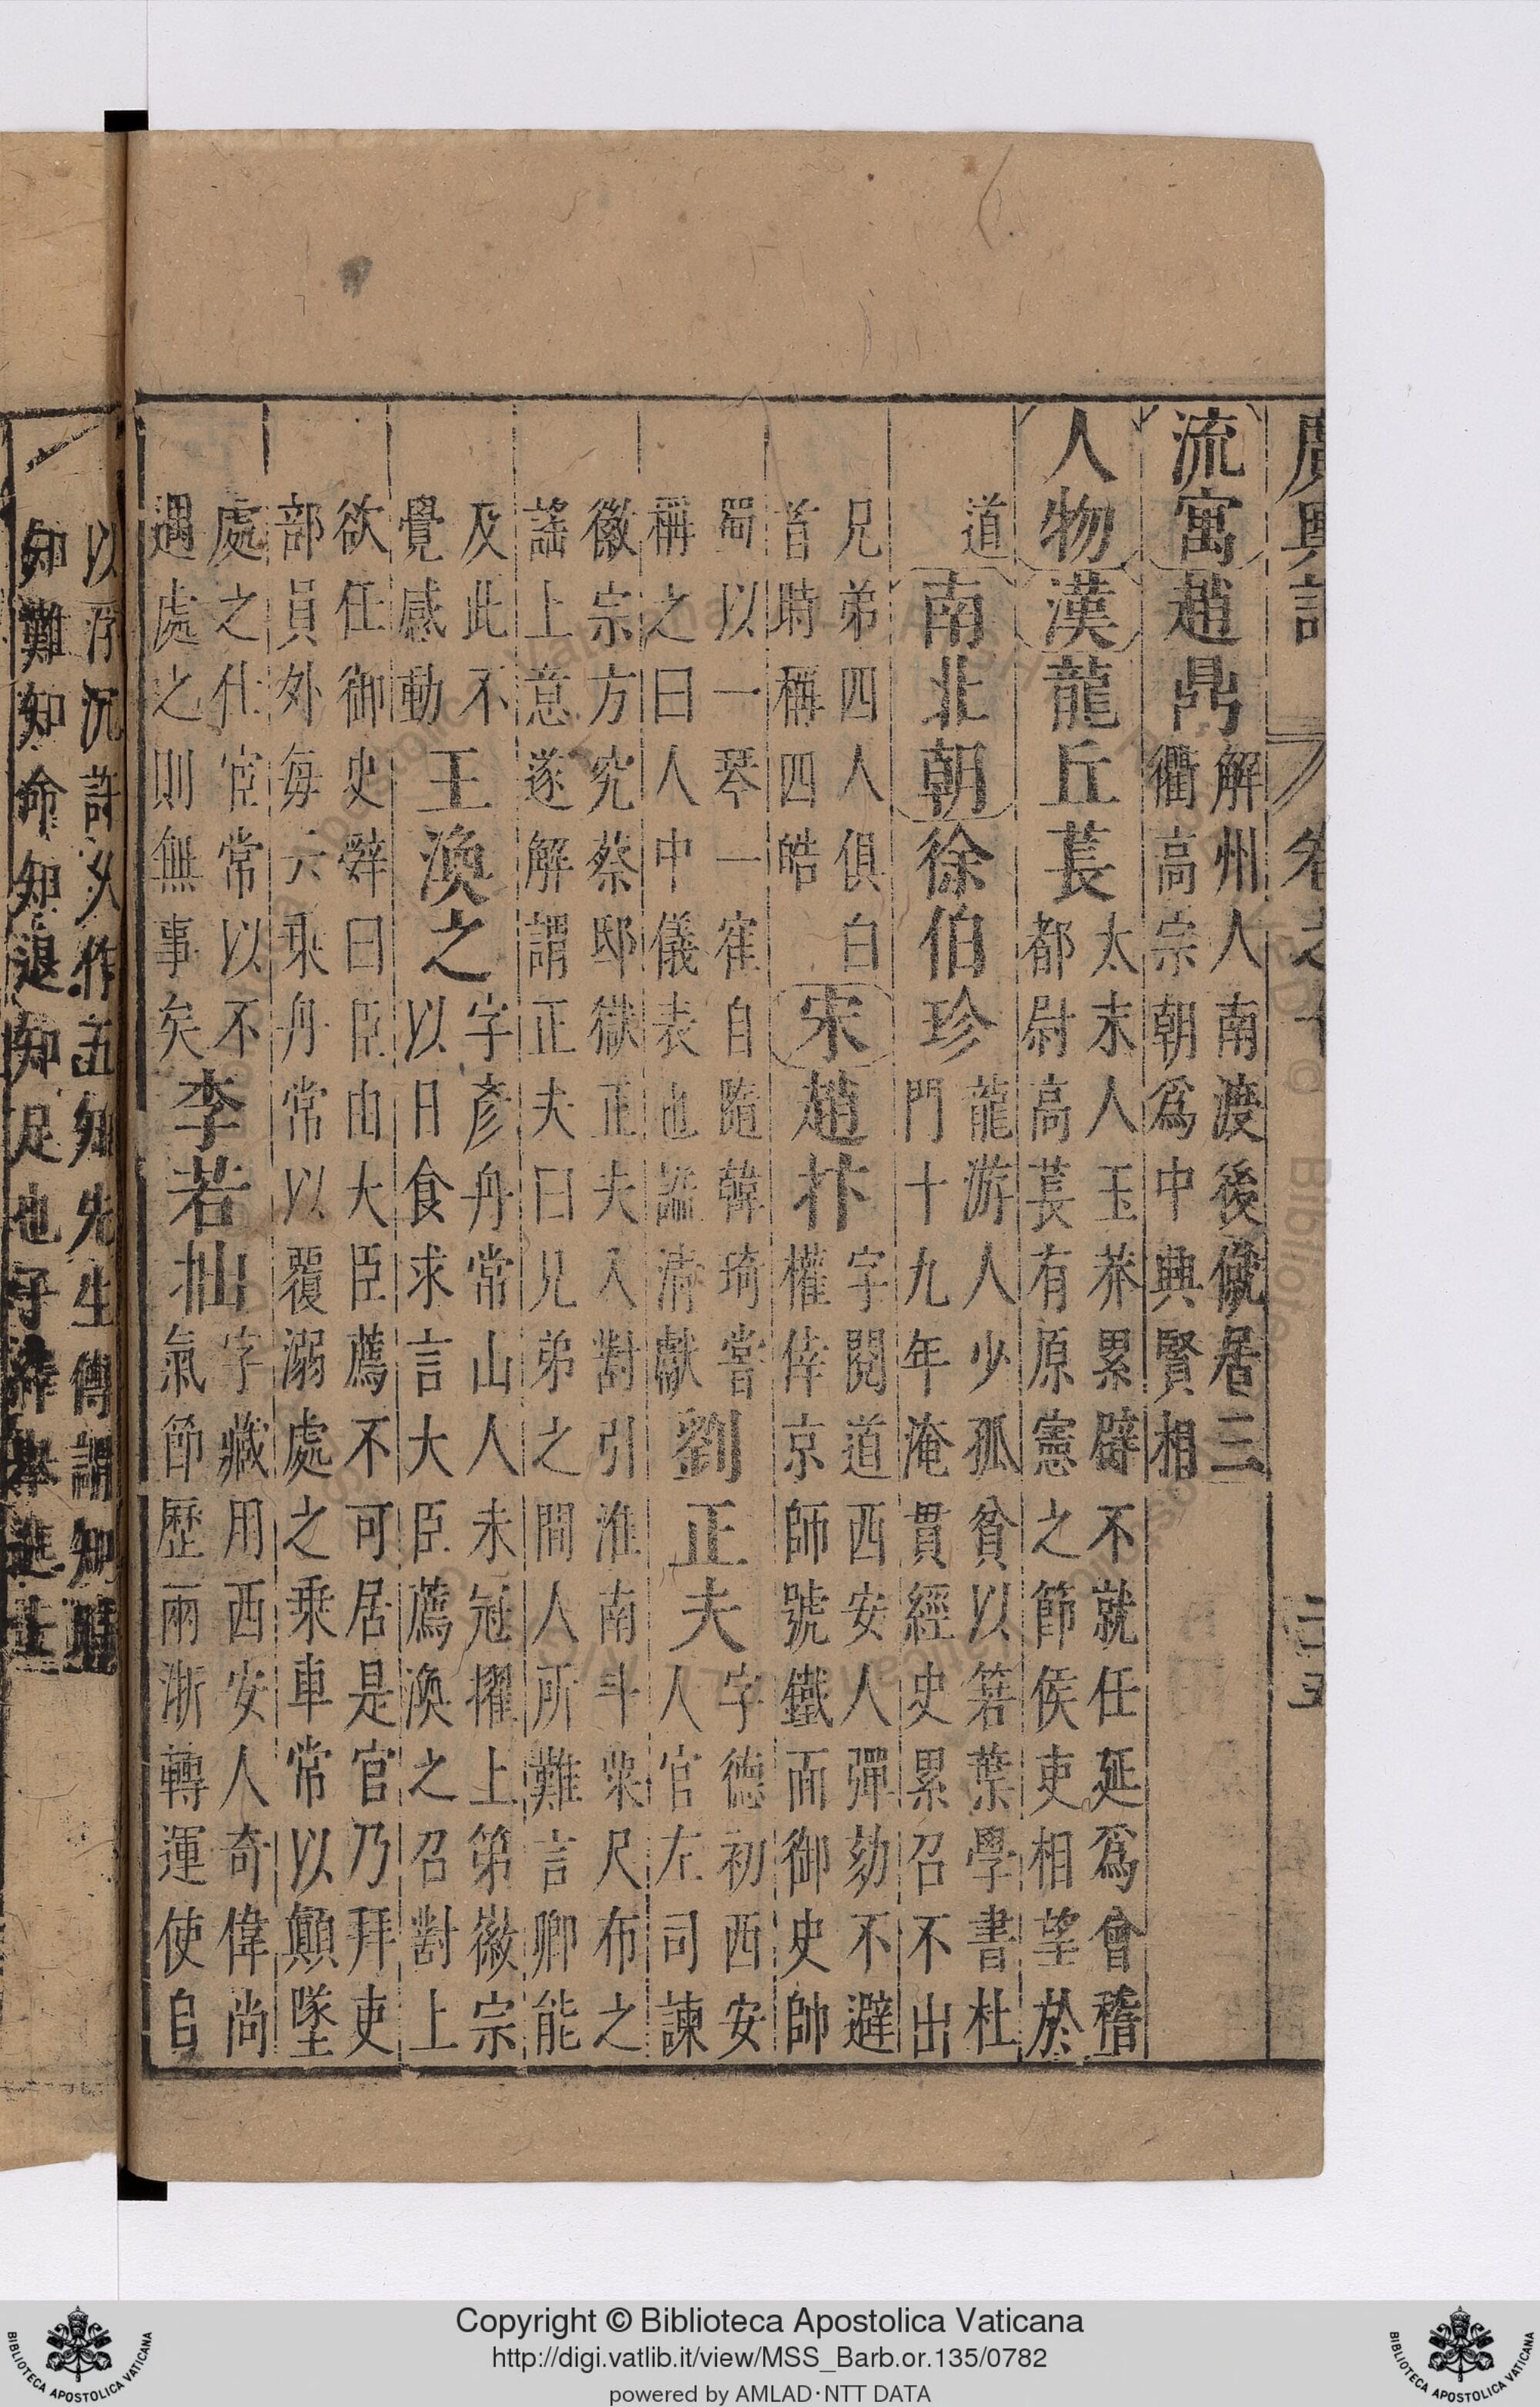 廣輿記 卷之十
流寓 趙鼎
解州人南渡後僦居三
衢高宗朝爲中興賢相
人物 漢 龍丘萇
太末人王莽累辟不就任延爲會稽
都尉高萇有原憲之節俟吏相望於
道
南北朝 徐伯珍
龍游人少孤貧以箬葉學書杜
門十九年淹貫經史累召不出
兄弟四人俱白
首時稱四皓
宋 趙抃
字閱道西安人彈劾不避
權倖京師號鐵面御史帥
蜀以一琴一隺自隨韓琦嘗
稱之曰人中儀表也謚清獻
劉正夫
字德初西安
人官左司諫
徽宗方究蔡邸獄正夫入對引淮南斗粟尺布之
謠上意遂解謂正夫曰兄弟之間人所難言卿能
及此不
覺感動
王渙之
字彥舟常山人未冠擢上第徽宗
以日食求言大臣薦渙之召對上
欲任御史辤曰臣由大臣薦不可居是官乃拜吏
部員外每云乘舟常以覆溺處之乘車常以顛墜
處之仕宦常以不
遇處之則無事矣
李若拙
字藏用西安人奇偉尚
氣節歷兩浙轉運使自
以浮沉許久作五知先生傳謂知時
知難知命知退知足也子繹舉進士
Copyright © Biblioteca Apostolica Vaticana
http://digi.vatlib.it/view/MSS_Barb.or.135/0782
powered by AMLAD·NTT DATA
BIBLIOTECA APOSTOLICA VATICANA
BIBLIOTECA APOSTOLICA VATICANA